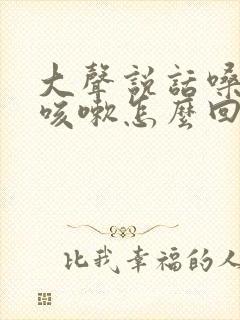 大聲説話嗓
咳嗽怎麼回
比我幸福的人